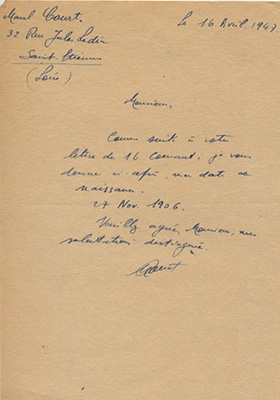 Marcel Court. Le 16 Avril 1947.
32 Rue Jules Ledin
Saint-Etienne
(Loire)
Monsieur,
Comme suite à votre
lettre de 16 courant, je vous
donne ci-après ma date de
naissance.
27 Nov. 1906.
Veuillez agréer, Monsieur, mes
salutations distinguées.
Court